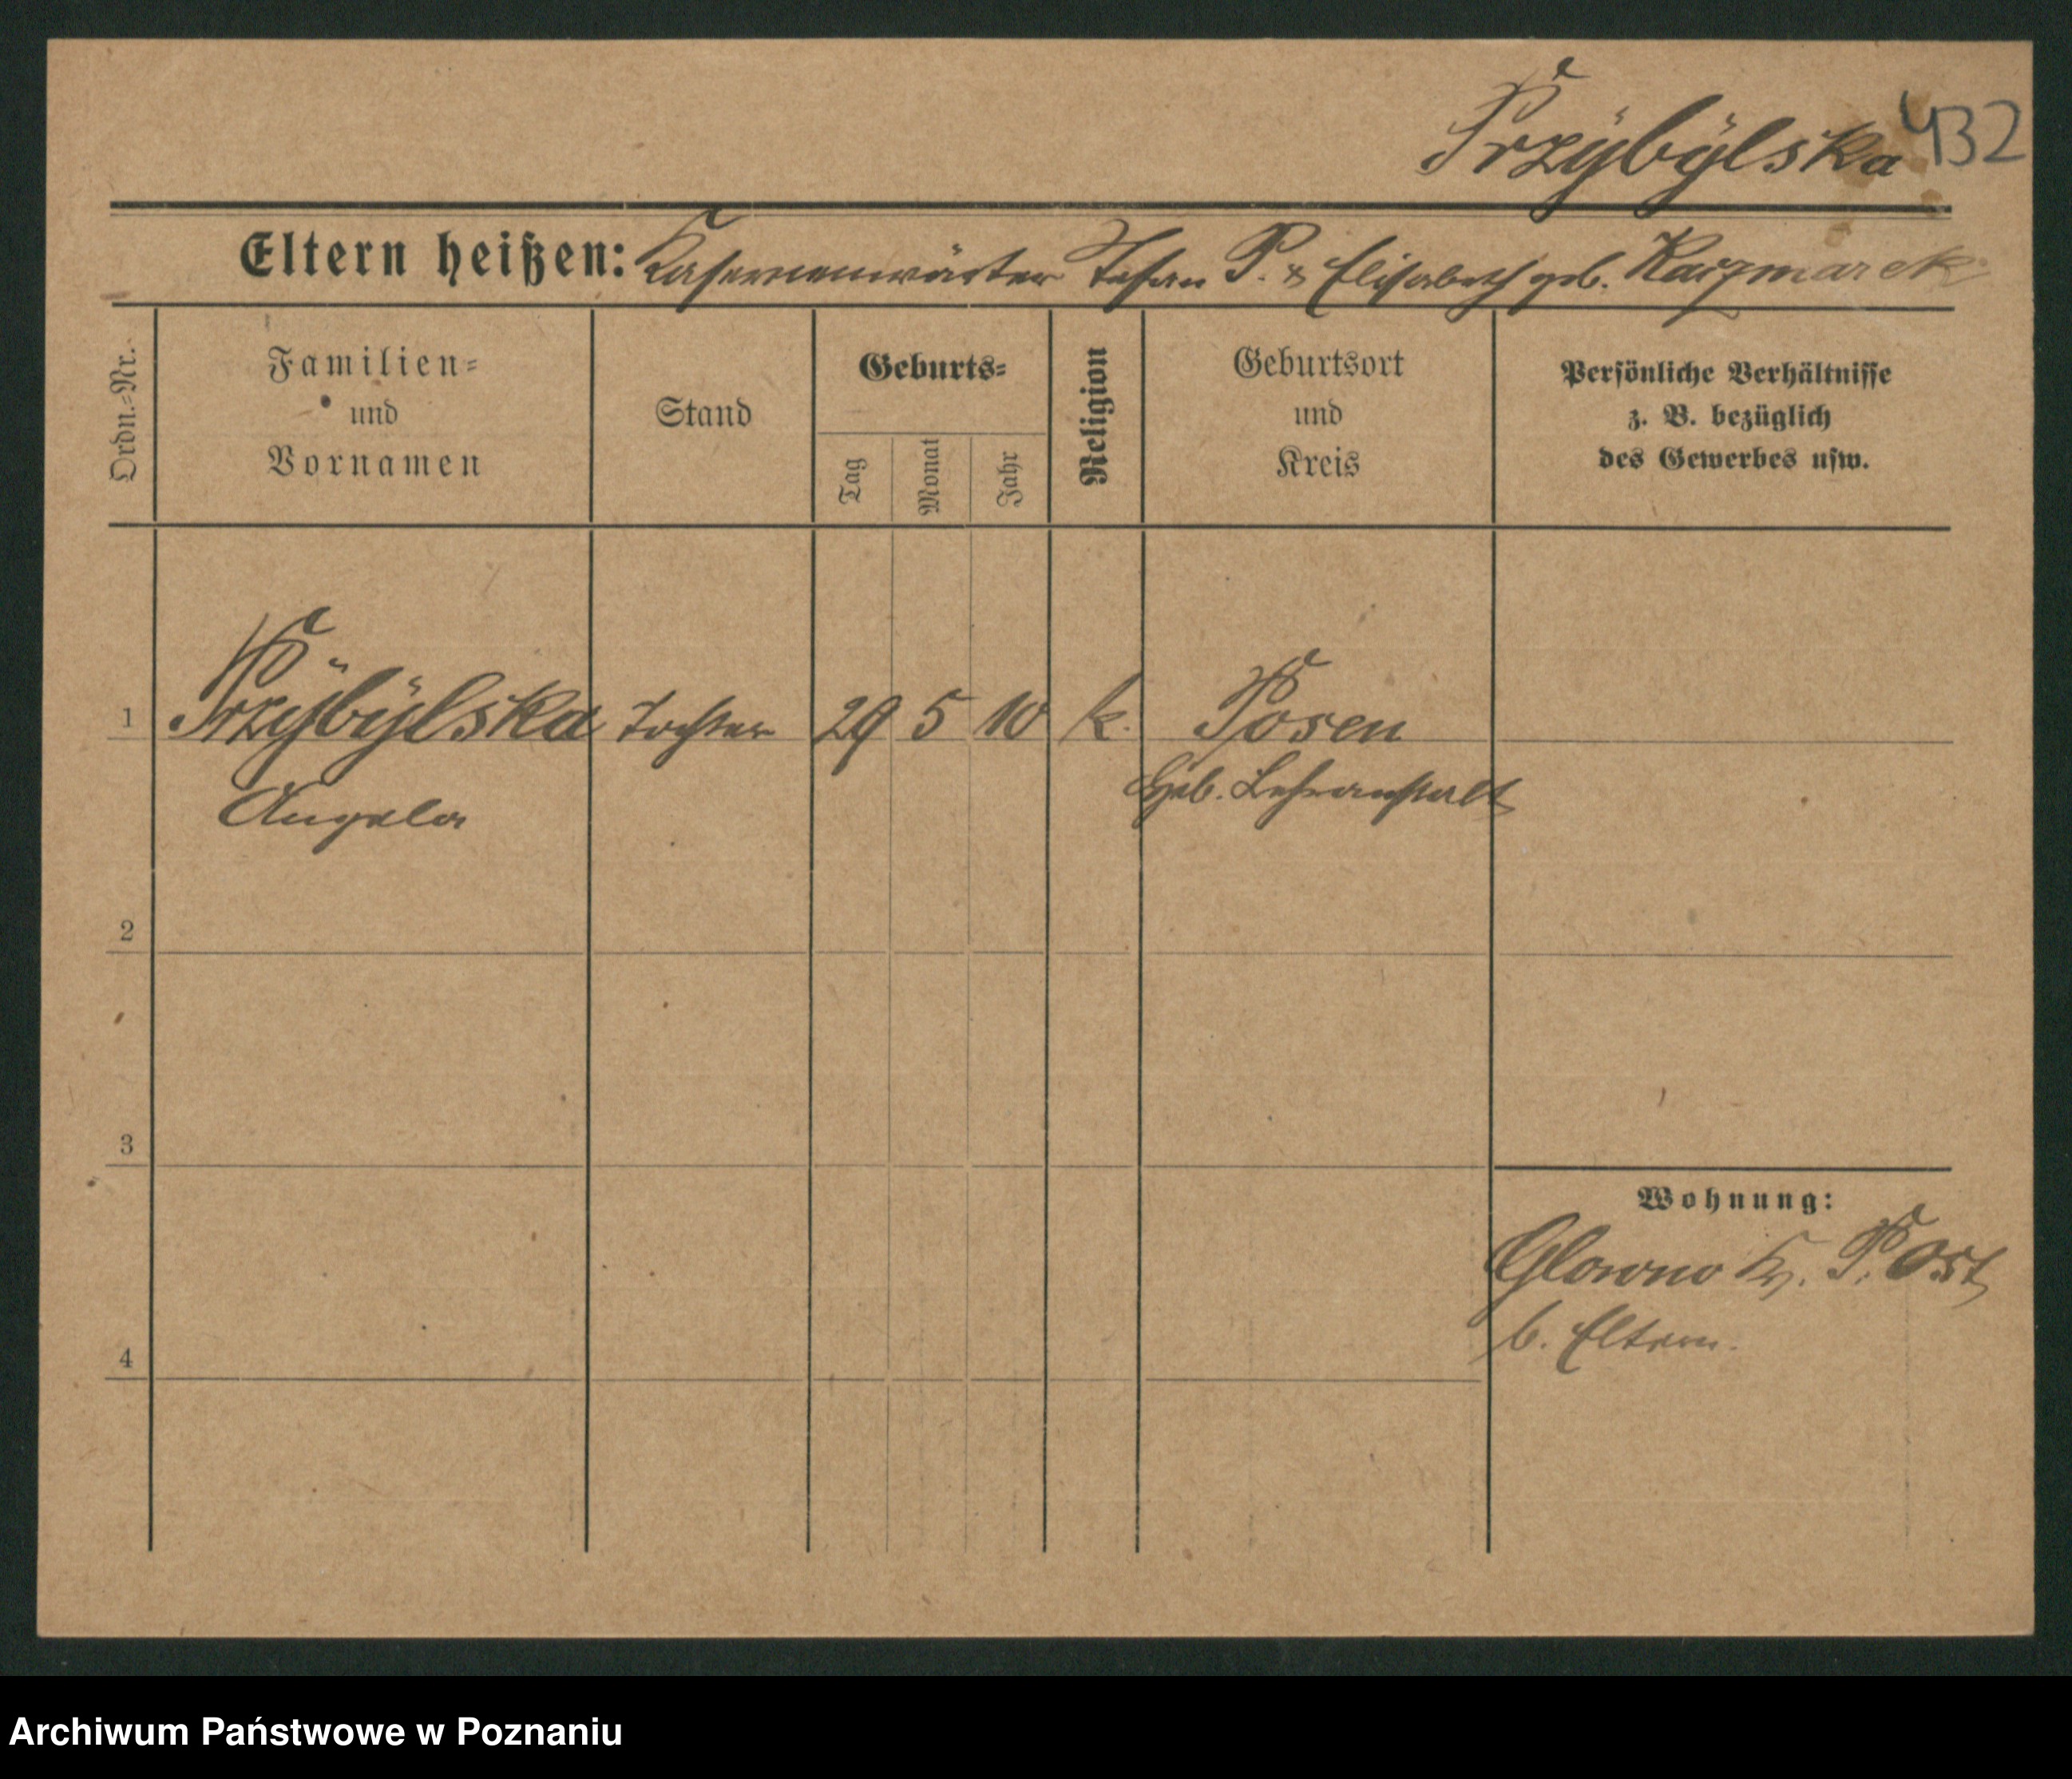 Przÿbÿlska 432
Eltern heißen: Kasernenwärter P. & Elisabeth geb. Kaczmarek
Ordn.=Nr.
Familien=
und
Vornamen
Stand
Geburts=
Tag
Monat
Jahr
Religion
Geburtsort
und
Kreis
Persönliche Verhältnisse
z. B. bezüglich
des Gewerbes usw.
1 Przÿbÿlska Tochter 29 5 10 k. Posen
Angela Heb. Lehranstalt
2
3
Wohnung:
Glowno Kr. P. Ost
b. Eltern.
4
Archiwum Państwowe w Poznaniu